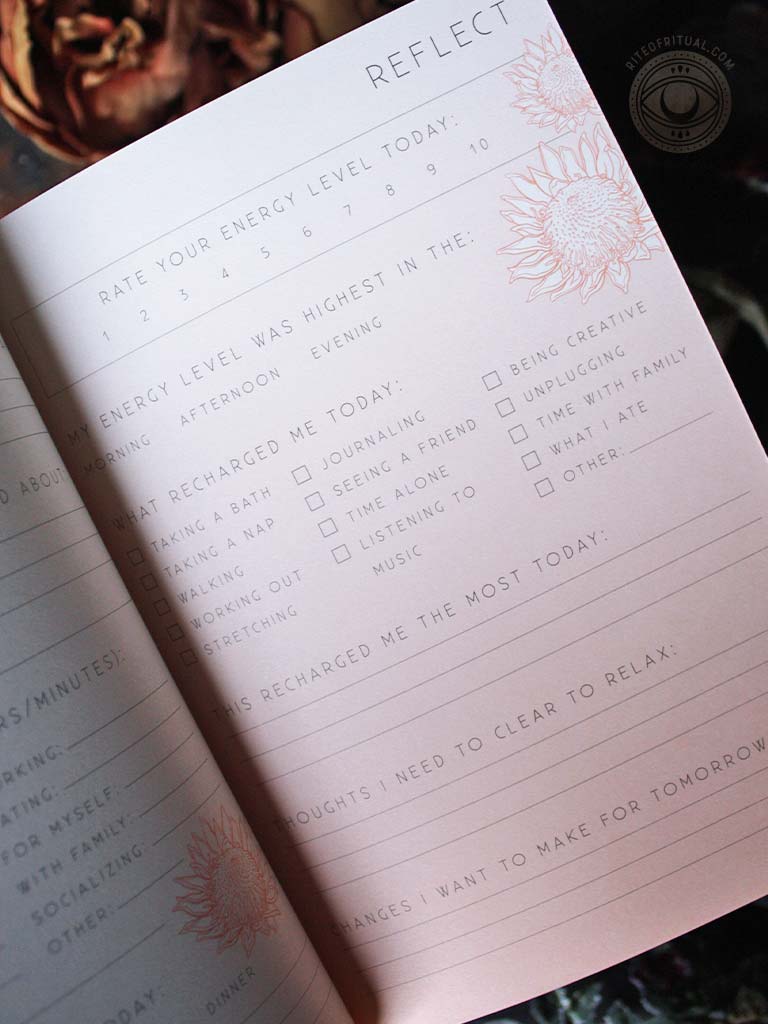 RITEOFRITUAL.COM
REFLECT
RATE YOUR ENERGY LEVEL TODAY:
1 2 3 4 5 6 7 8 9 10
MY ENERGY LEVEL WAS HIGHEST IN THE:
MORNING AFTERNOON EVENING
WHAT RECHARGED ME TODAY:
TAKING A BATH
TAKING A NAP
WALKING
WORKING OUT
STRETCHING
JOURNALING
SEEING A FRIEND
TIME ALONE
LISTENING TO
MUSIC
BEING CREATIVE
UNPLUGGING
TIME WITH FAMILY
WHAT I ATE
OTHER:
THIS RECHARGED ME THE MOST TODAY:
THOUGHTS I NEED TO CLEAR TO RELAX:
CHANGES I WANT TO MAKE FOR TOMORROW
ABOUT
/MINUTES):
FOR MYSELF:
WITH FAMILY:
SOCIALIZING:
OTHER:
DINNER